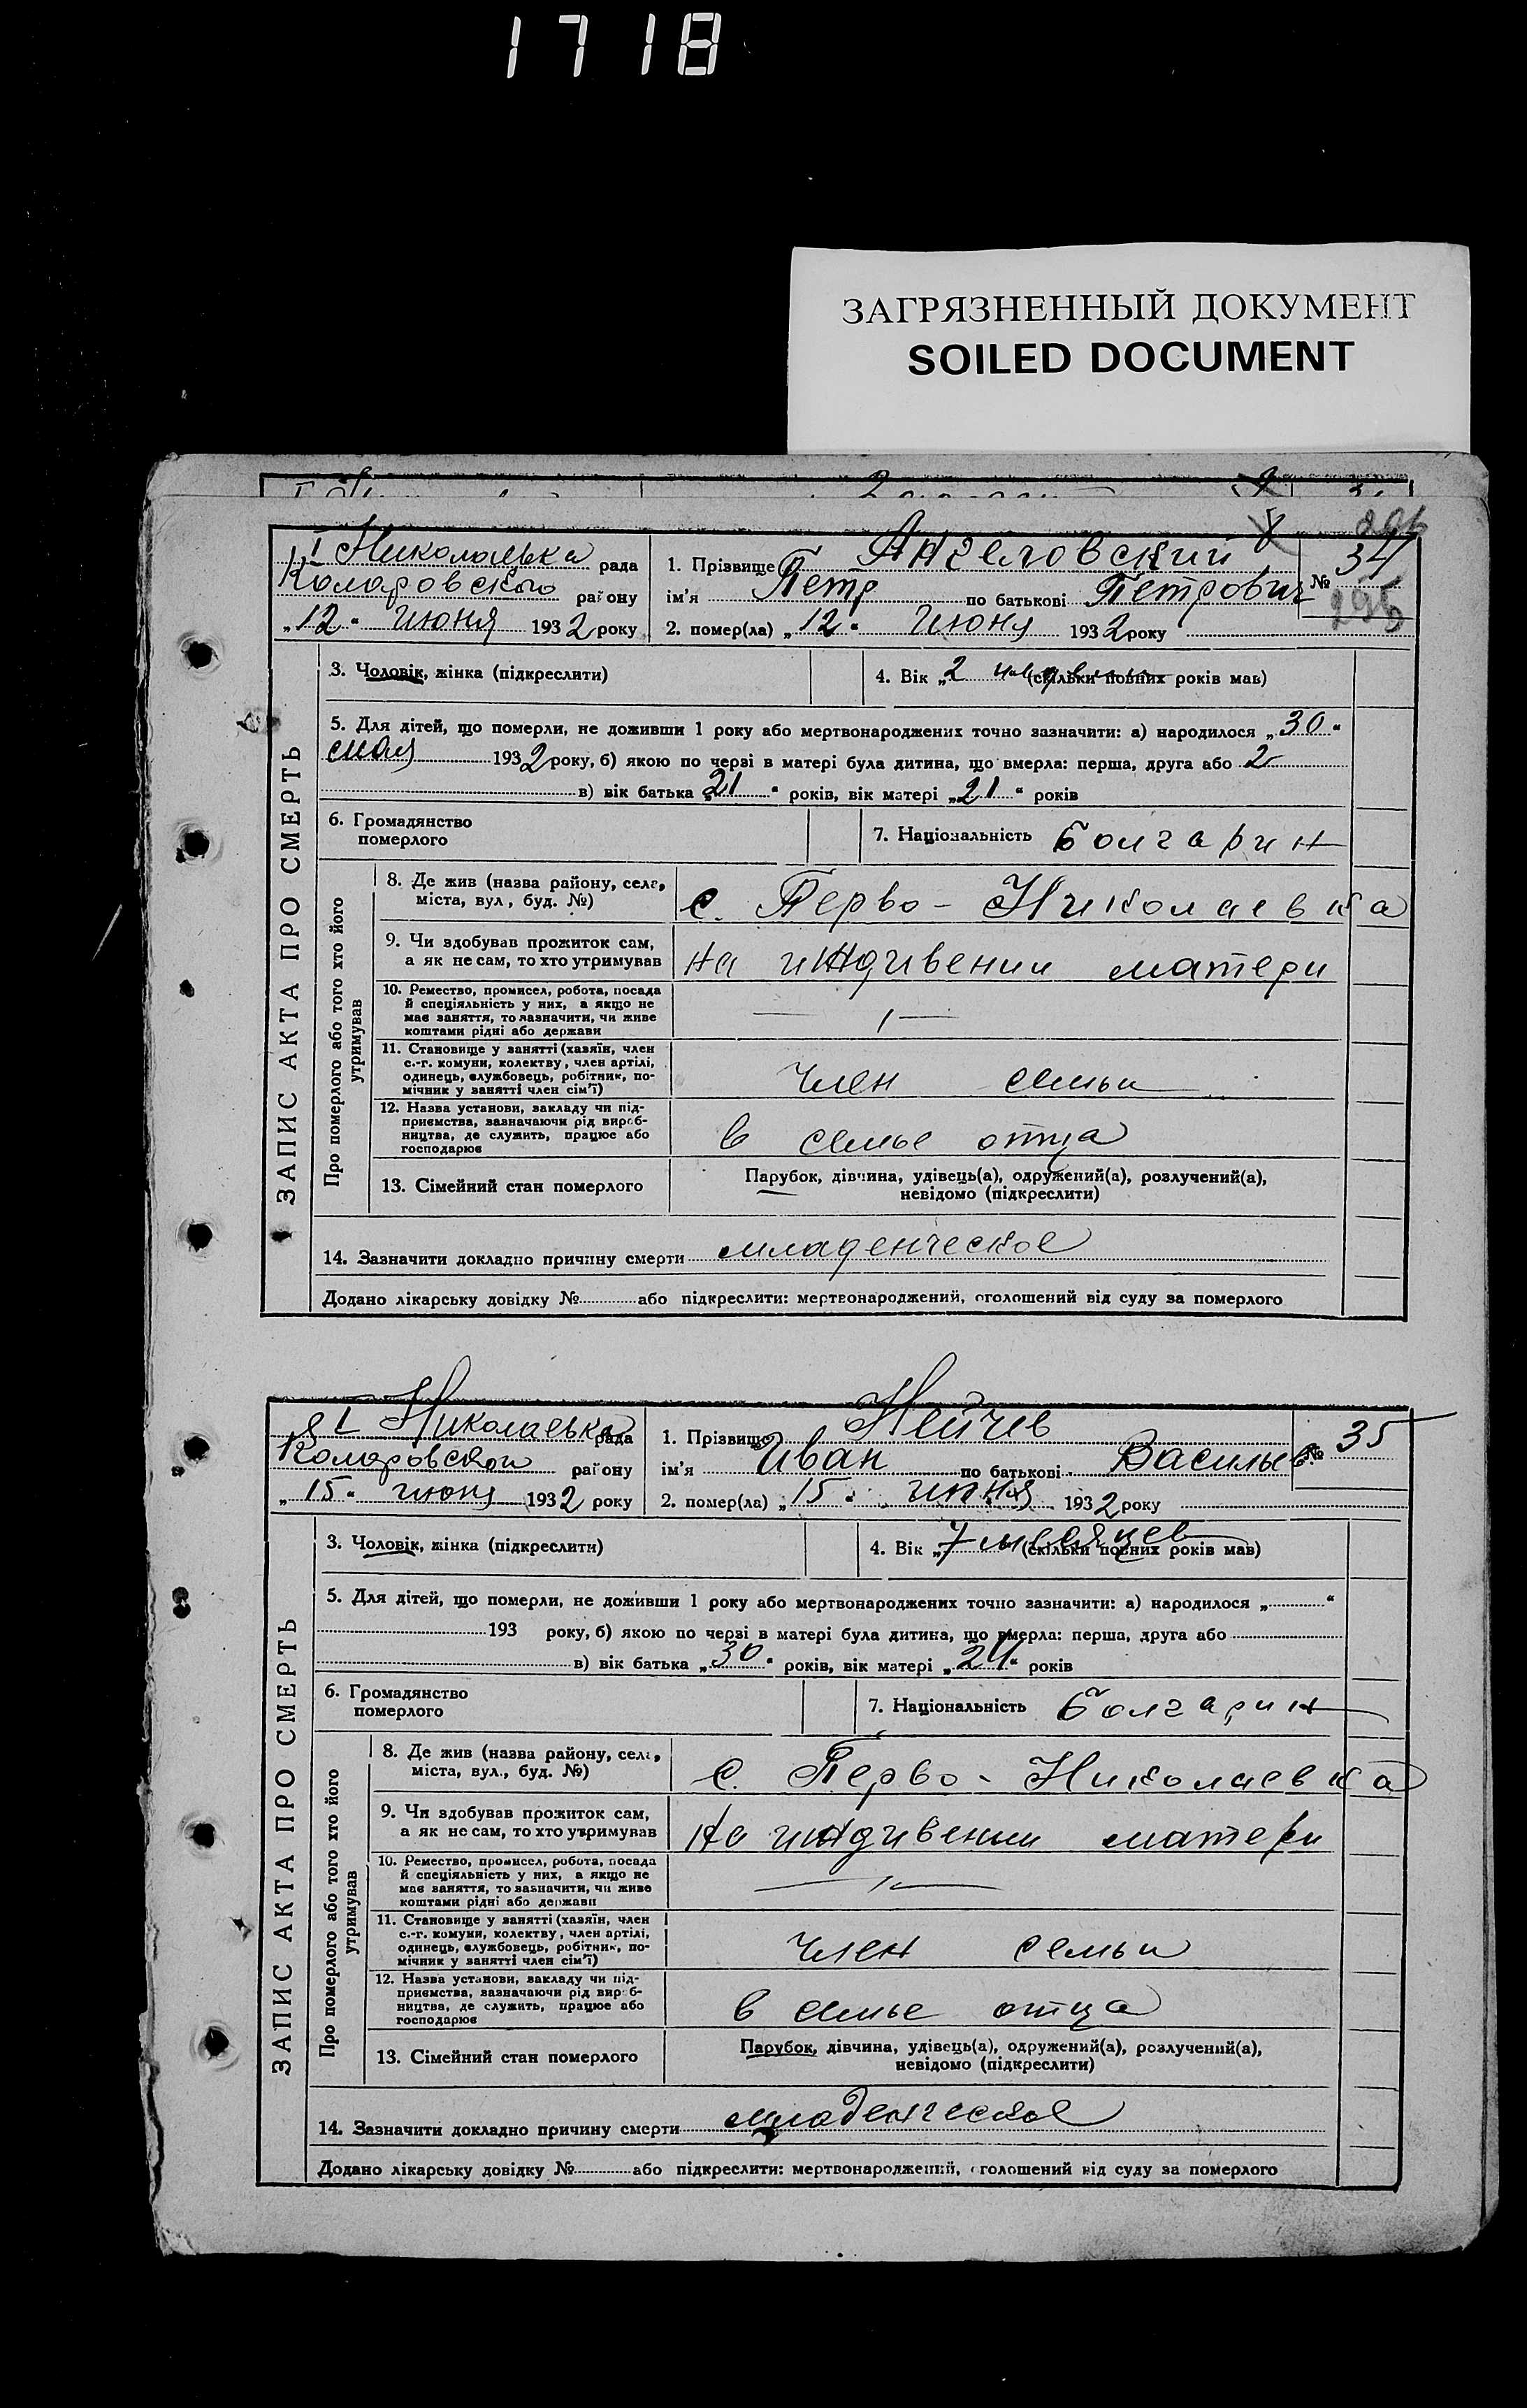 1718
ЗАГРЯЗНЕННЫЙ ДОКУМЕНТ
SOILED DOCUMENT
I Николаевка рада
Коларовского району
„12“ июня 1932 року
1. Прізвище Ангеловский
ім'я Петр по батькові Петрович
2. помер(ла) „12“ июня 1932 року
№ 34
ЗАПИС АКТА ПРО СМЕРТЬ
3. Чоловік, жінка (підкреслити)
4. Вік „2 недели (скільки повних років мав)
5. Для дітей, що померли, не доживши 1 року або мертвонароджених точно зазначити: а) народилося „30“
мая 1932 року, б) якою по черзі в матері була дитина, що вмерла: перша, друга або 2
в) вік батька „21“ років, вік матері „21“ років
6. Громадянство
померлого
7. Національність болгарин
Про померлого або того хто його
утримував
8. Де жив (назва району, села,
міста, вул., буд. №)
с. Перво-Николаевка
9. Чи здобував прожиток сам,
а як не сам, то хто утримував
на иждивении матери
10. Ремество, промисел, робота, посада
й спеціяльність у них, а якщо не
має заняття, то зазначити, чи живе
коштами рідні або держави
— ı —
11. Становище у занятті (хазяїн, член
с.-г. комуни, колектву, член артілі,
одинець, службовець, робітник, по-
мічник у занятті член сім'ї)
член семьи
12. Назва установи, закладу чи під-
приємства, зазначаючи рід вироб-
ництва, де служить, працює або
господарює
в семье отца
13. Сімейний стан померлого
Парубок, дівчина, удівець(а), одружений(а), розлучений(а),
невідомо (підкреслити)
14. Зазначити докладно причину смерти младенческое
Додано лікарську довідку № або підкреслити: мертвонароджений, оголошений від суду за померлого
I Николаевка рада
Коларовской району
„15“ июня 1932 року
1. Прізвище Нейчев
ім'я Иван по батькові Васильев
2. помер(ла) „15“ июня 1932 року
№ 35
ЗАПИС АКТА ПРО СМЕРТЬ
3. Чоловік, жінка (підкреслити)
4. Вік „7 месяцев (скільки повних років мав)
5. Для дітей, що померли, не доживши 1 року або мертвонароджених точно зазначити: а) народилося „ “
193 року, б) якою по черзі в матері була дитина, що вмерла: перша, друга або
в) вік батька „30“ років, вік матері „24“ років
6. Громадянство
померлого
7. Національність болгарин
Про померлого або того хто його
утримував
8. Де жив (назва району, села,
міста, вул., буд. №)
с. Перво-Николаевка
9. Чи здобував прожиток сам,
а як не сам, то хто утримував
на иждивении матери
10. Ремество, промисел, робота, посада
й спеціяльність у них, а якщо не
має заняття, то зазначити, чи живе
коштами рідні або держави
— ı —
11. Становище у занятті (хазяїн, член
с.-г. комуни, колектву, член артілі,
одинець, службовець, робітник, по-
мічник у занятті член сім'ї)
член семьи
12. Назва установи, закладу чи під-
приємства, зазначаючи рід вироб-
ництва, де служить, працює або
господарює
в семье отца
13. Сімейний стан померлого
Парубок, дівчина, удівець(а), одружений(а), розлучений(а),
невідомо (підкреслити)
14. Зазначити докладно причину смерти младенческое
Додано лікарську довідку № або підкреслити: мертвонароджений, оголошений від суду за померлого